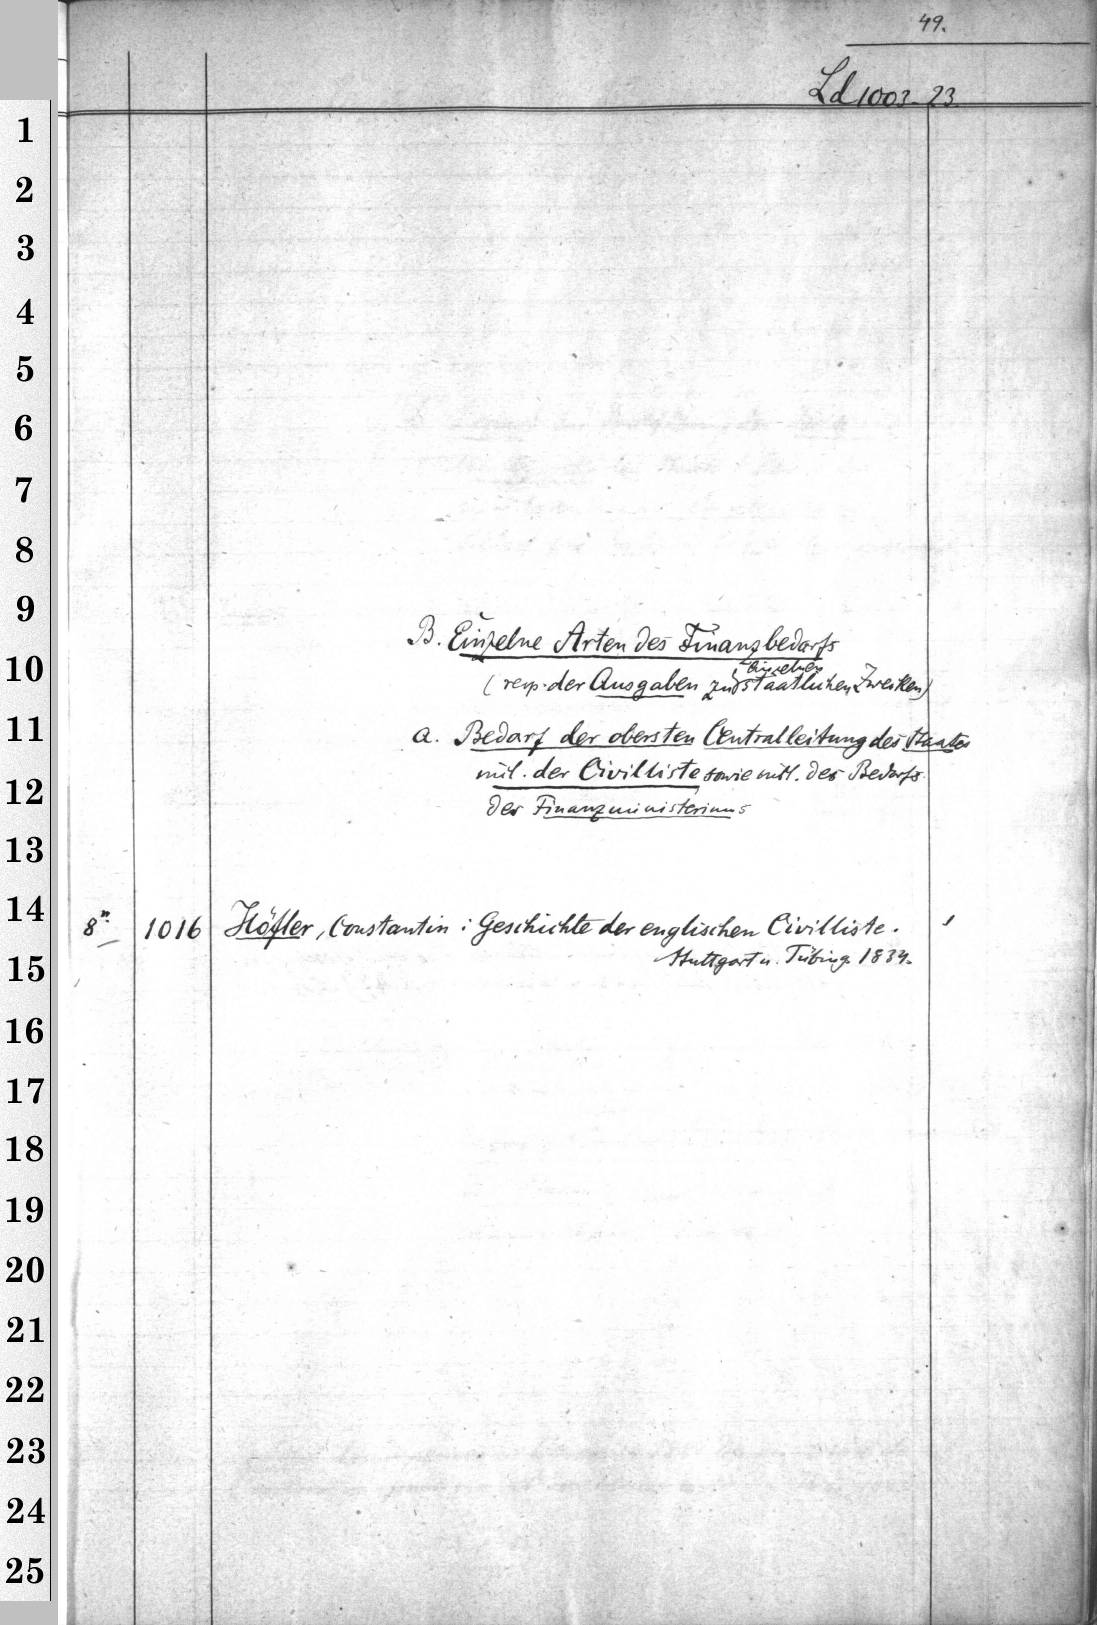 49.
Ld 1003-23
1
2
3
4
5
6
7
8
9
B. Einzelne Arten des Finanzbedarfs
10
einzelnen
(resp. der Ausgaben zu staatlichen Zwecken)
11
a. Bedarf der obersten Centralleitung des Staates
mit. der Civilliste sowie mitl. des Bedarfs
12
des Finanzministeriums
13
14
8° 1016 Höfler, Constantin: Geschichte der englischen Civilliste.
Stuttgart u. Tübing. 1834.
15
16
17
18
19
20
21
22
23
24
25